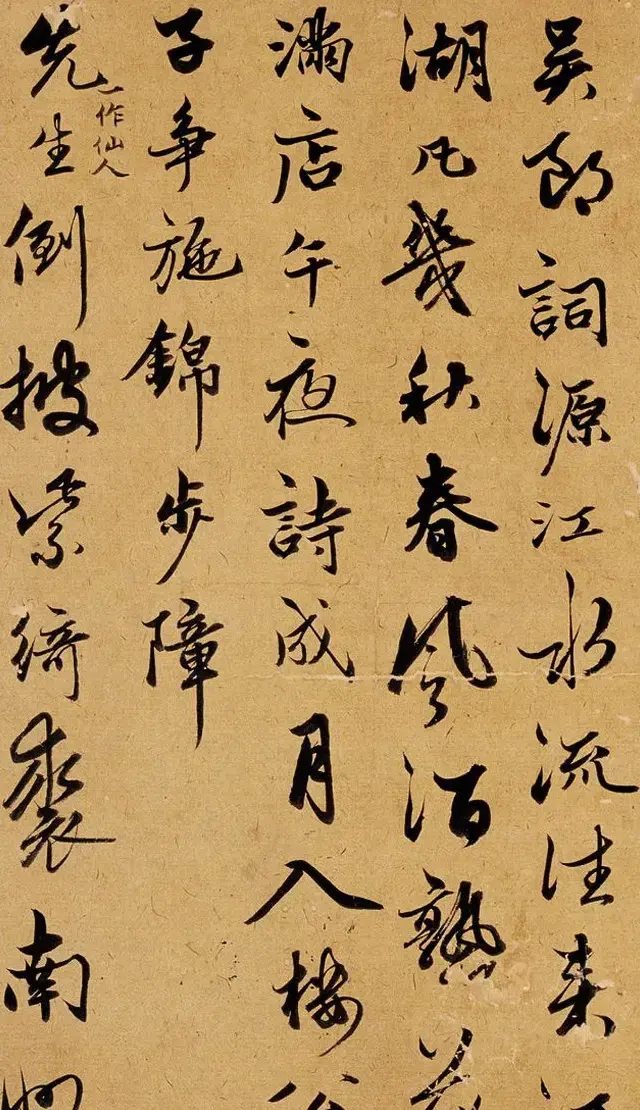 吳郎詞源江水流往来
湖凡幾秋春風酒熟
滿店午夜詩成月入樓
子争施錦步障
先生一作仙人倒披紫綺裘南